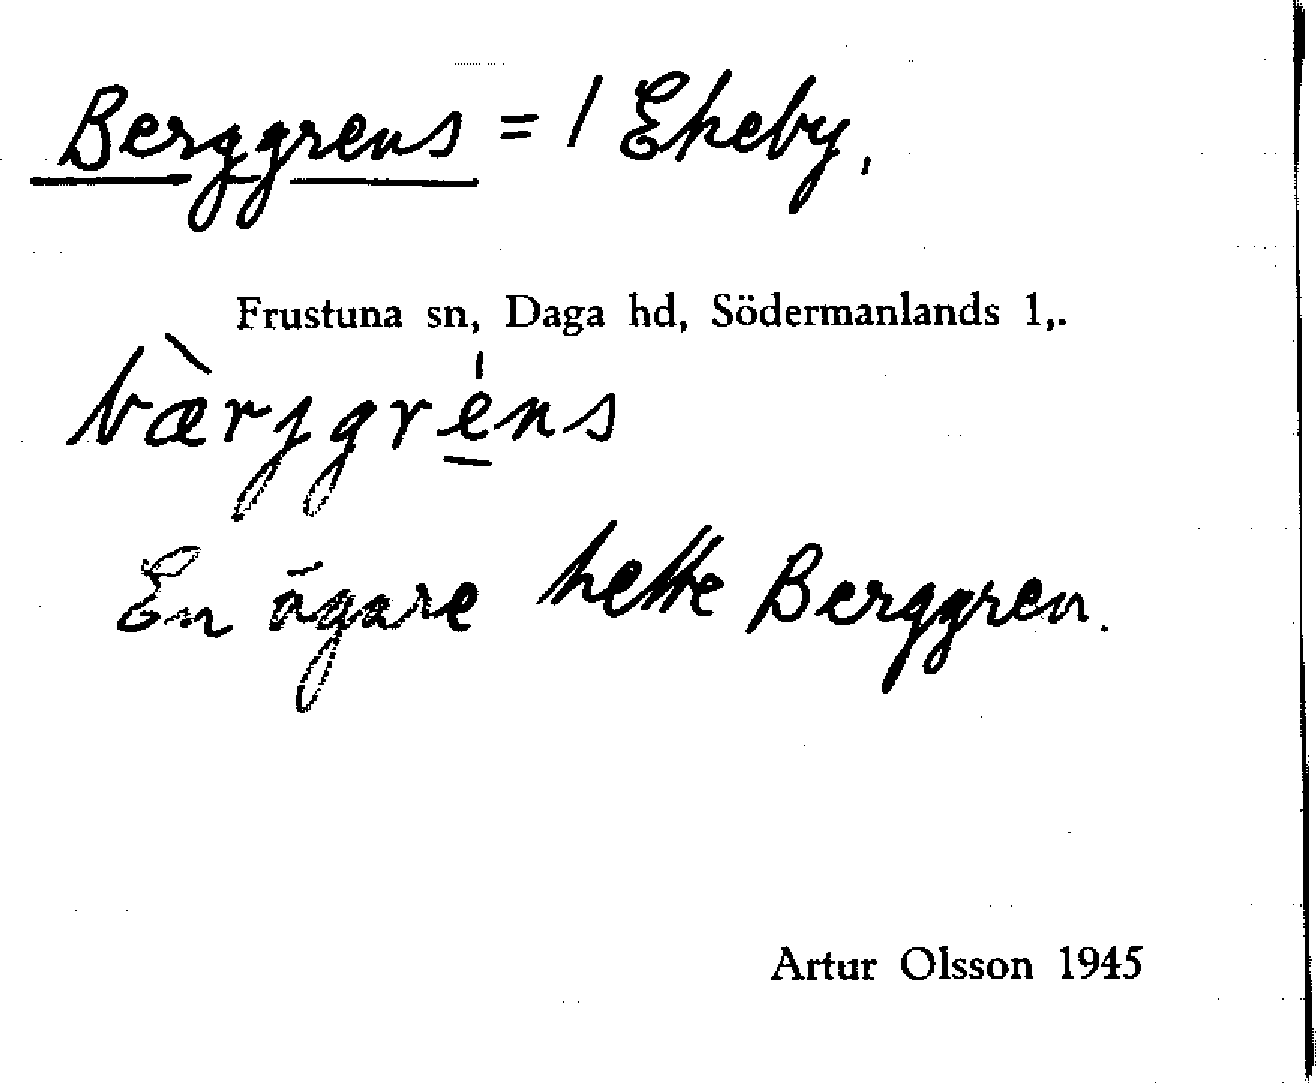 Berggrens = / Ekeby,
Frustuna sn, Daga hd, Södermanlands l,.
bæ̀rjgré̲ns
En ägare hette Berggren.
Artur Olsson 1945